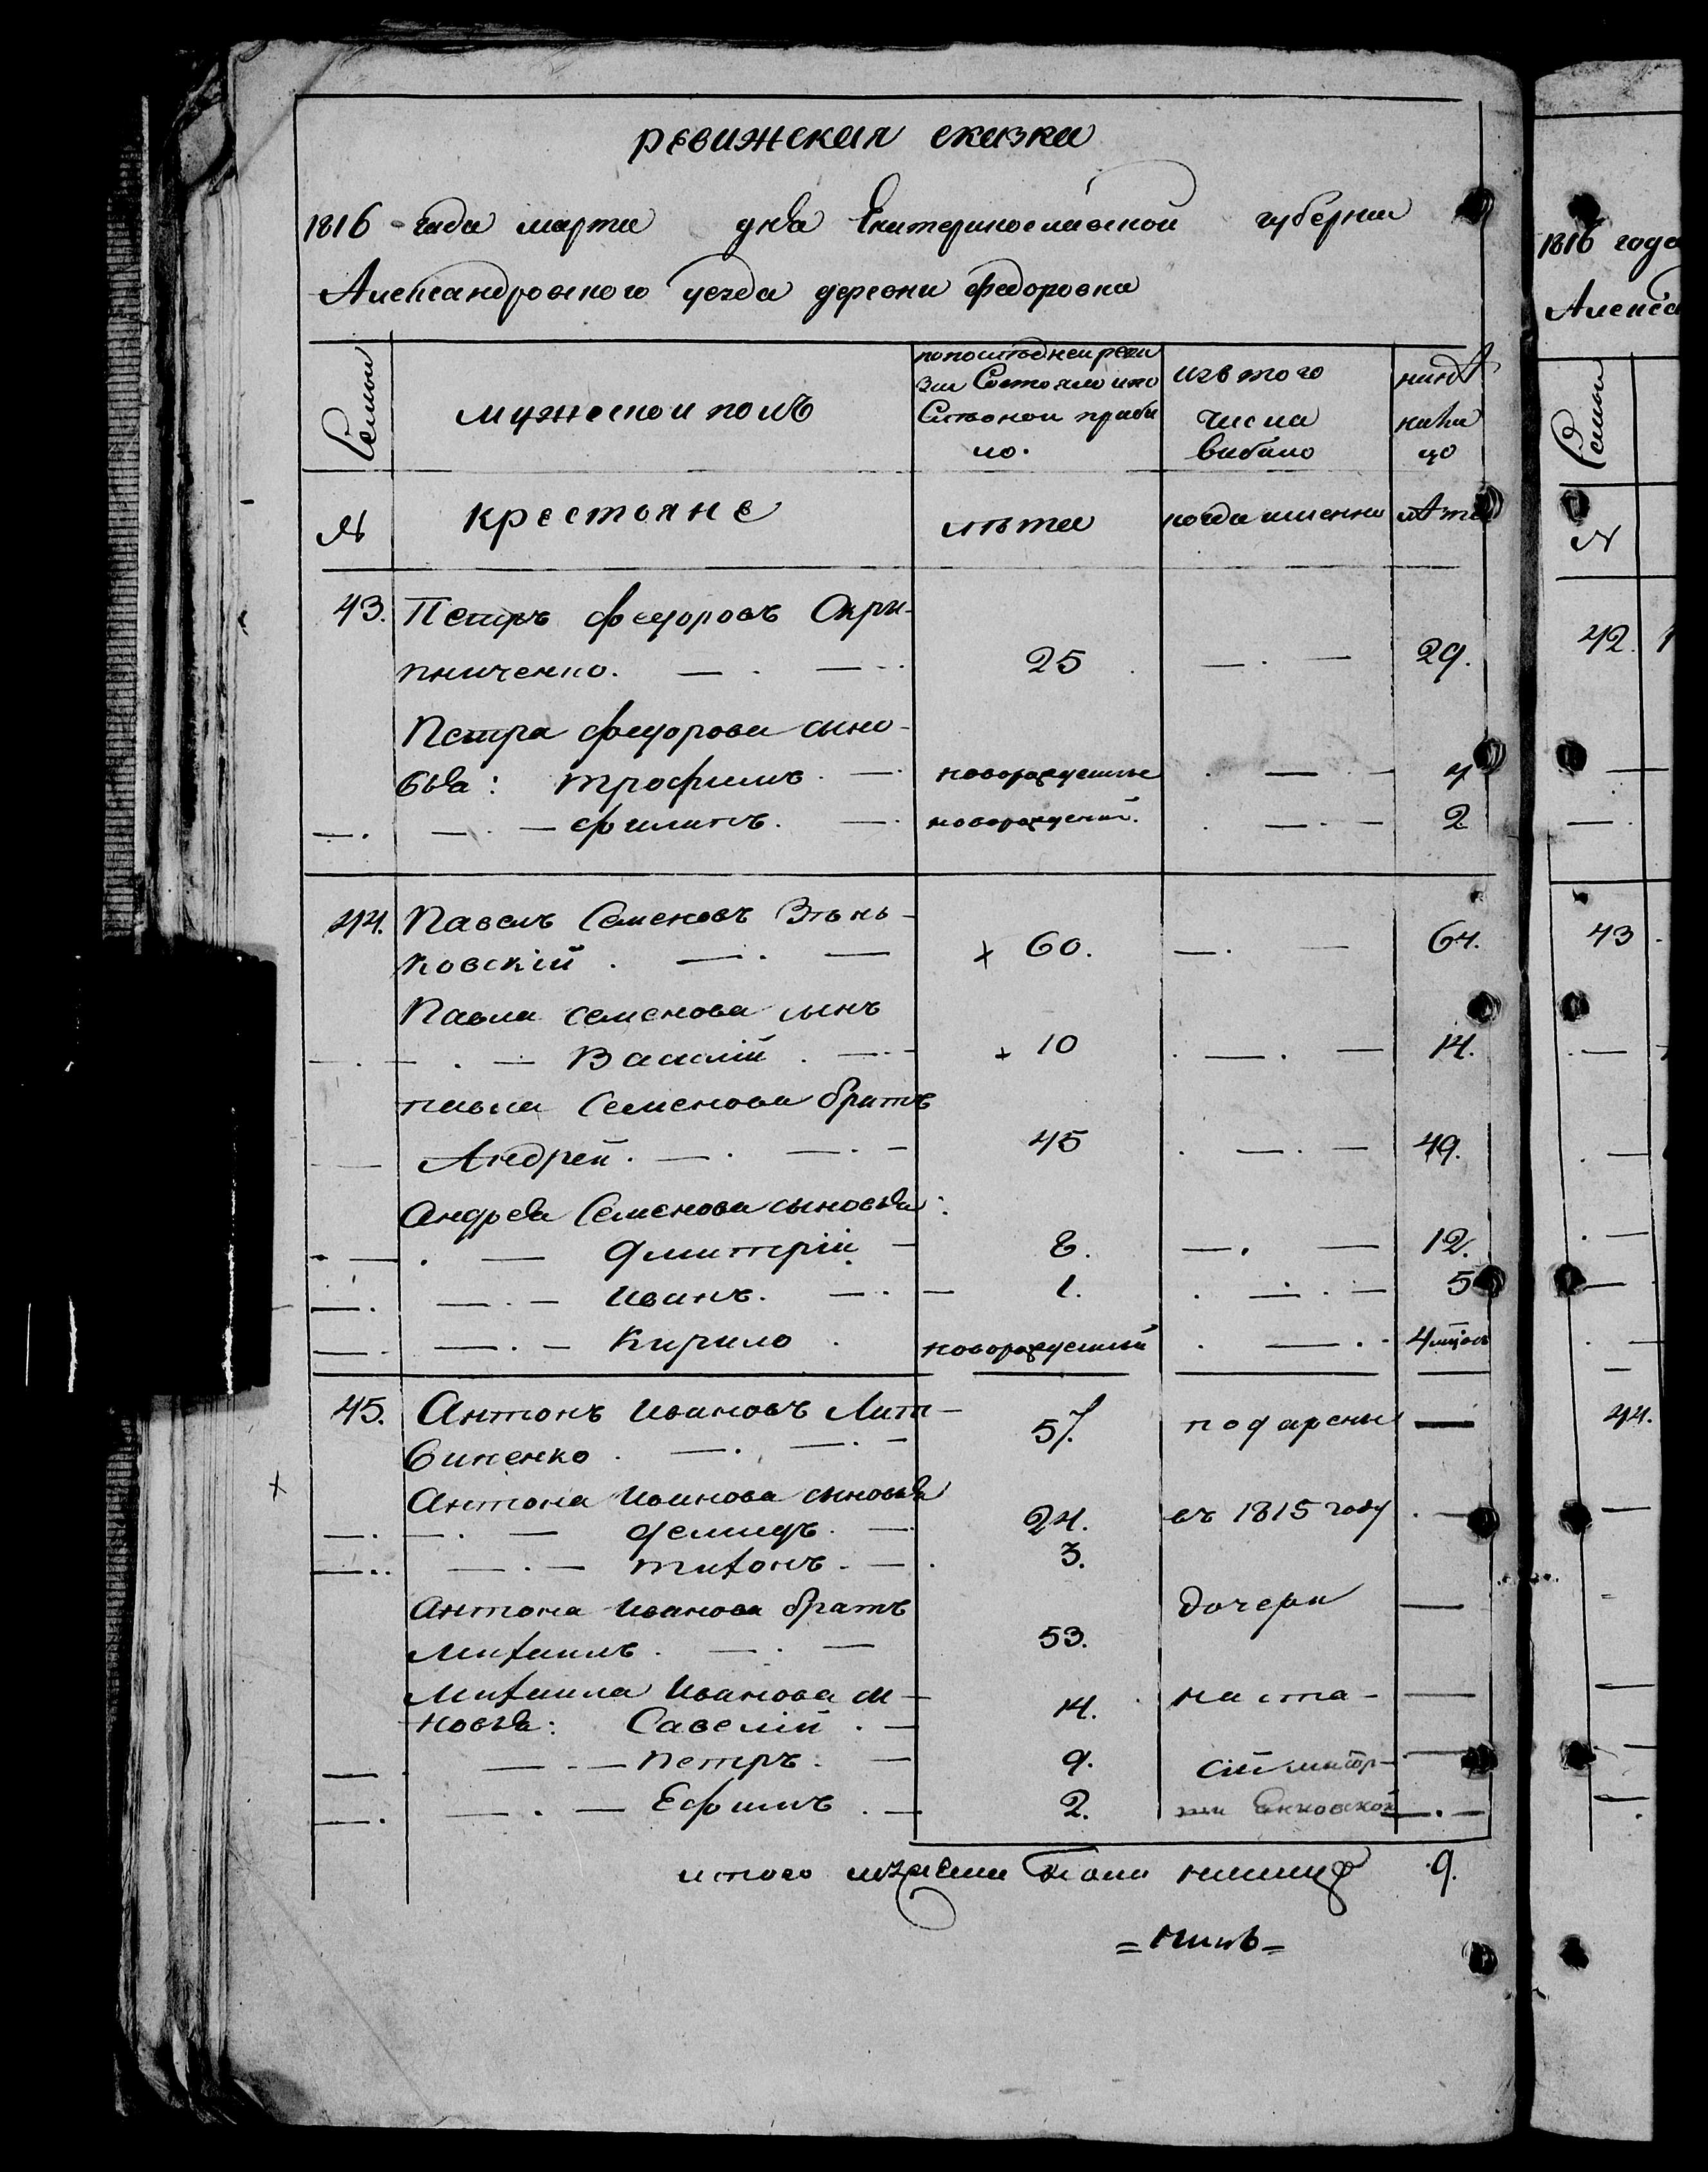 ревижская сказка
1816 года марта дня Екатеринославской губернии
Александровского уезда деревни Федоровки
Семьи
мужеской полъ
по последней реви
зии Состояло и по
Сле оной прибы
ло.
изъ того
числа
выбыло
ныне
на ли
цо
№
крестяне
лѣта
когда именно
лѣта
43. Петръ федоровъ Скри-
пниченко. 25 29.
Петра федорова сыно-
вья: трофимъ. новорожденные 4
филипъ. новорожденный. 2
44. Павелъ Семеновъ Зѣнь-
ковскій. х 60. 64.
Павла семенова сынъ
Василій. х 10 14.
павла Семенова братъ
Андрей. 45 49.
Андрея Семенова сыновья:
дмитрій 8. 12.
Иванъ. 1. 5
Кирило. новорожденный 4 мцовъ
45. Антонъ Ивановъ Лит-
виненко. 57. подарены
х
Антона Иванова сыновья
демидъ. 24. въ 1815 году
тихонъ. 3.
Антона Иванова братъ
Михаилъ. 53. дочери
Михаила Иванова сы-
новья: Савелій. 14. наста-
петръ. 9. сіи
Ефимъ. 2.
итого мужеска пола налицо 9.
=
1816 года
Алекса
Семьи
№
42.
43
44.